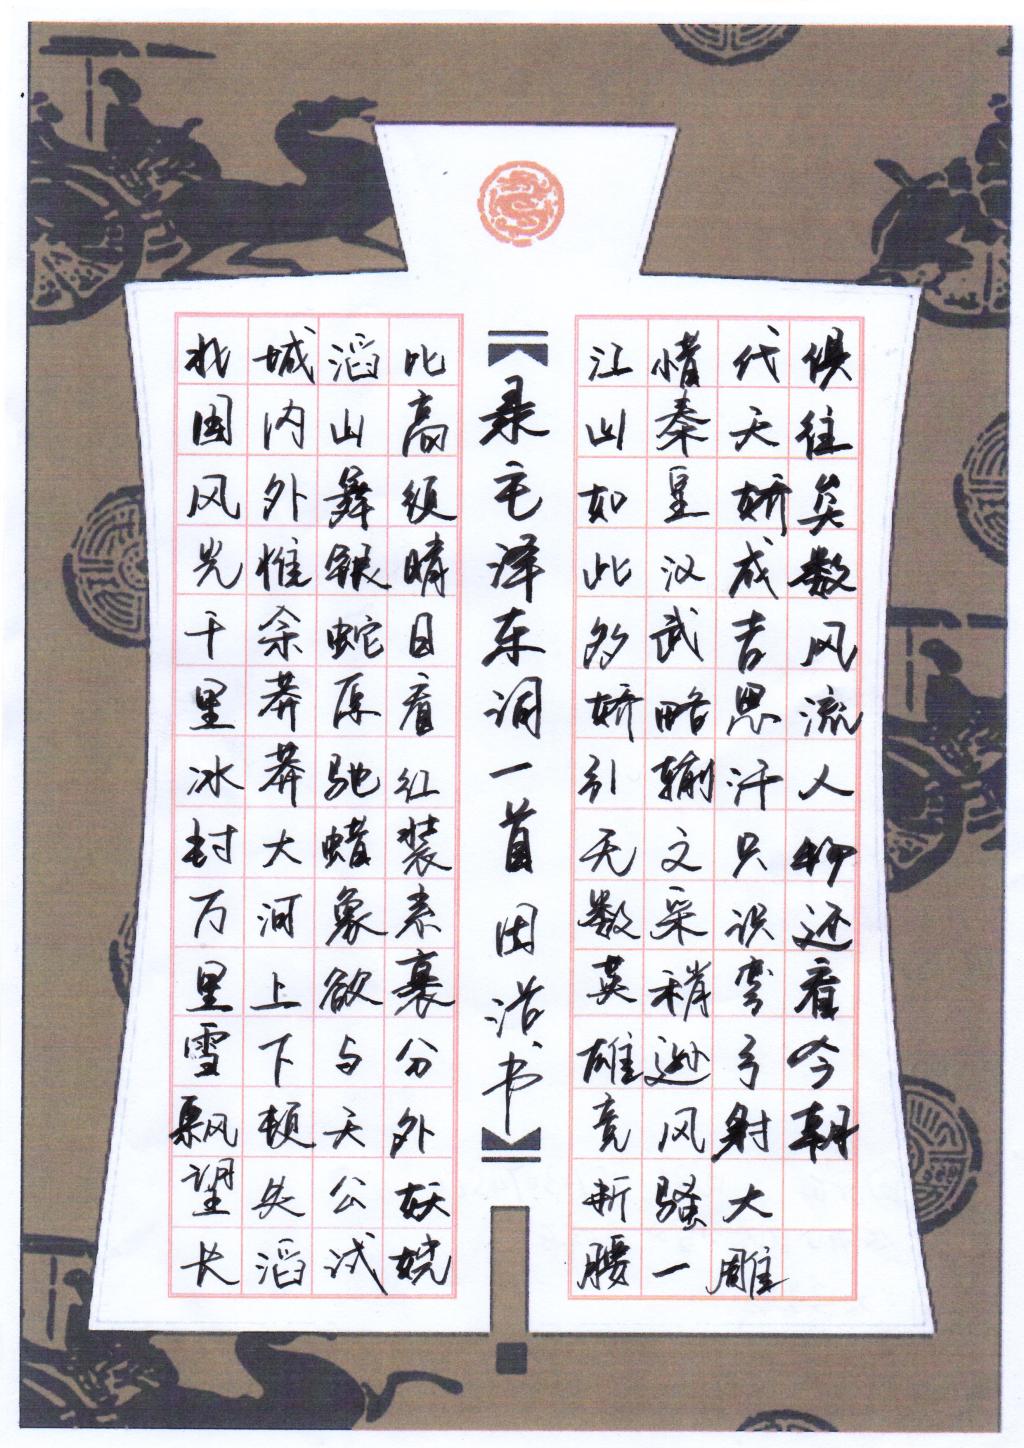 北国风光千里冰封万里雪飘望长
城内外惟余莽莽大河上下顿失滔
滔山舞银蛇原驰蜡象欲与天公试
比高须晴日看红装素裹分外妖娆
录毛泽东词一首 书
江山如此多娇引无数英雄竞折腰
惜秦皇汉武略输文采稍逊风骚一
代天娇成吉思汗只识弯弓射大雕
俱往矣数风流人物还看今朝